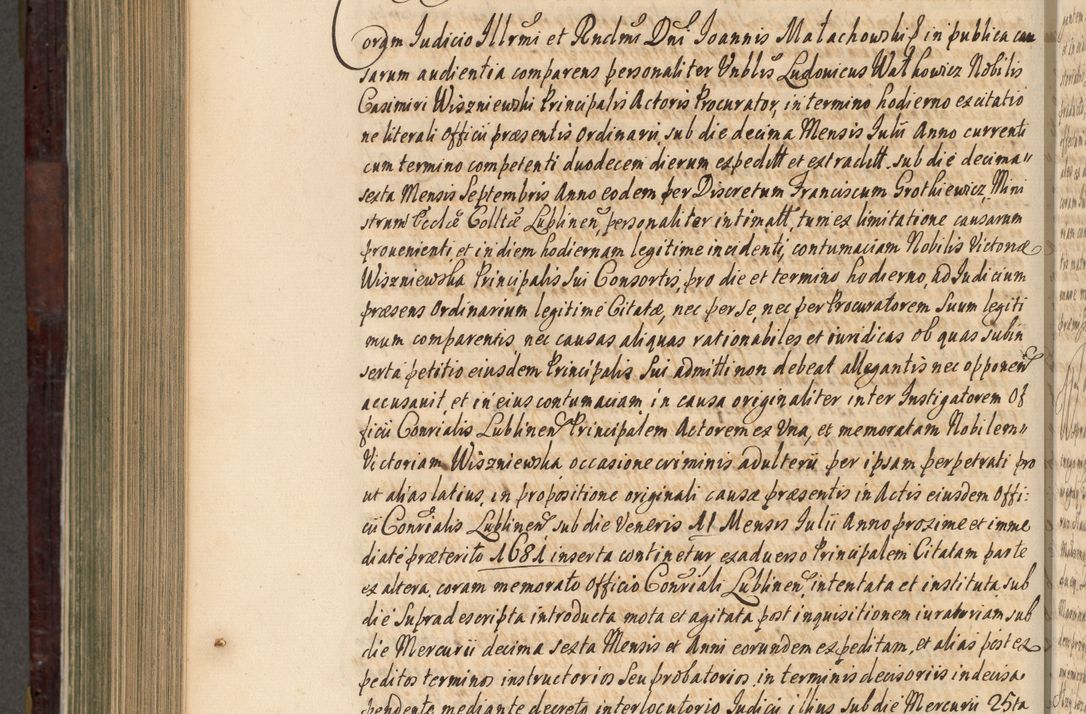 Coram Iudicio Illrmi et Rndmi Dni Ioannis Małachowski in publica cau
sarum audientia comparens personaliter Vnblis Ludovicus Wałkowicz Nobilis
Casimiri Wiszniewski Principalis Actoris Procurator, in termino hodierno ex citatio
ne literali Officii præsentis Ordinarii, sub die decima Mensis Iulii Anno currenti
cum termino competenti duodecem dierum expeditt et extraditt sub die decima"
sexta Mensis Septembris Anno eodem per Discretum Franciscum Grotkiewicz, Mini
strum Ecclæ Colltæ Lublinen, personaliter intimatt, tum ex limitatione causarum
prouenienti, et in diem hodiernam legitime incidenti, contumaciam Nobilis Victoriæ
Wiszniewska Principalis sui Consortis, pro die et termino hodierno, ad Iudicium
præsens Ordinarium legitime Citatæ, nec per se, nec per Procuratorem suum legiti
mum comparentis, nec causas aliquas rationabiles et iuridicas ob quas subin
serta petitio eiusdem Principalis sui admitti non debeat allegantis nec opponen
accusauit, et in eius contumaciam in causa originaliter inter Instigatorem Of
ficii Conrialis Lublinen Principalem Actorem ex Vna, et memoratam Nobilem"
Victoriam Wiszniewska occasione criminis adulterii per ipsam perpetrati pro
ut alias latius, in propositione originali causæ præsentis in Actis eiusdem Offi:
cii Conrialis Lublinen, sub die Veneris 11 Mensis Iulii Anno proxime et imme
diate præterito 1681 inserta continetur, ex aduerso Principalem Citatam parte
ex altera, coram memorato Officio Conriali Lublinen, intentata et instituta, sub
die supradescripta introducta mota et agitata, post inquisitionem iuratoriam sub
die Mercurii decima sexta Mensis et Anni eorundem expeditam, et alias post ex
peditos terminos instructorios seu probatorios, in terminis decisoriis indecisa
pendente mediante decreto interlocutorio Iudicii illius sub die Mercurii 25ta